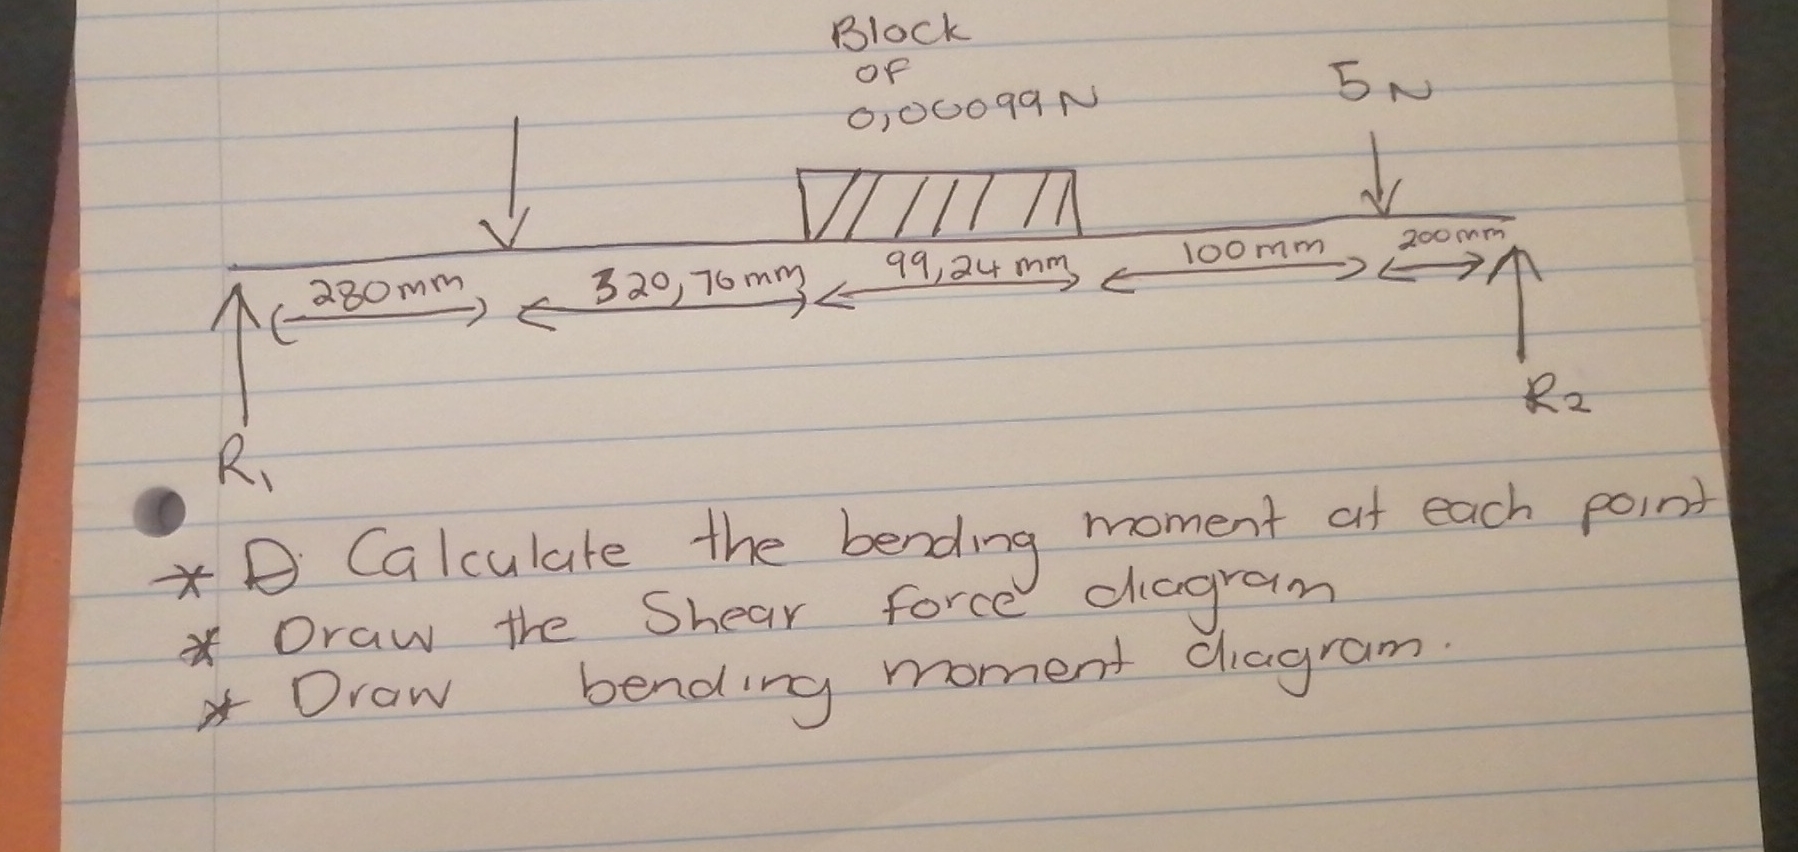 Block
OF
0,00099N
5N
280mm
320,76mm
99,24mm
100mm
200mm
R1
R2
* D. Calculate the bending moment at each point
* Draw the Shear force diagram
* Draw bending moment diagram.